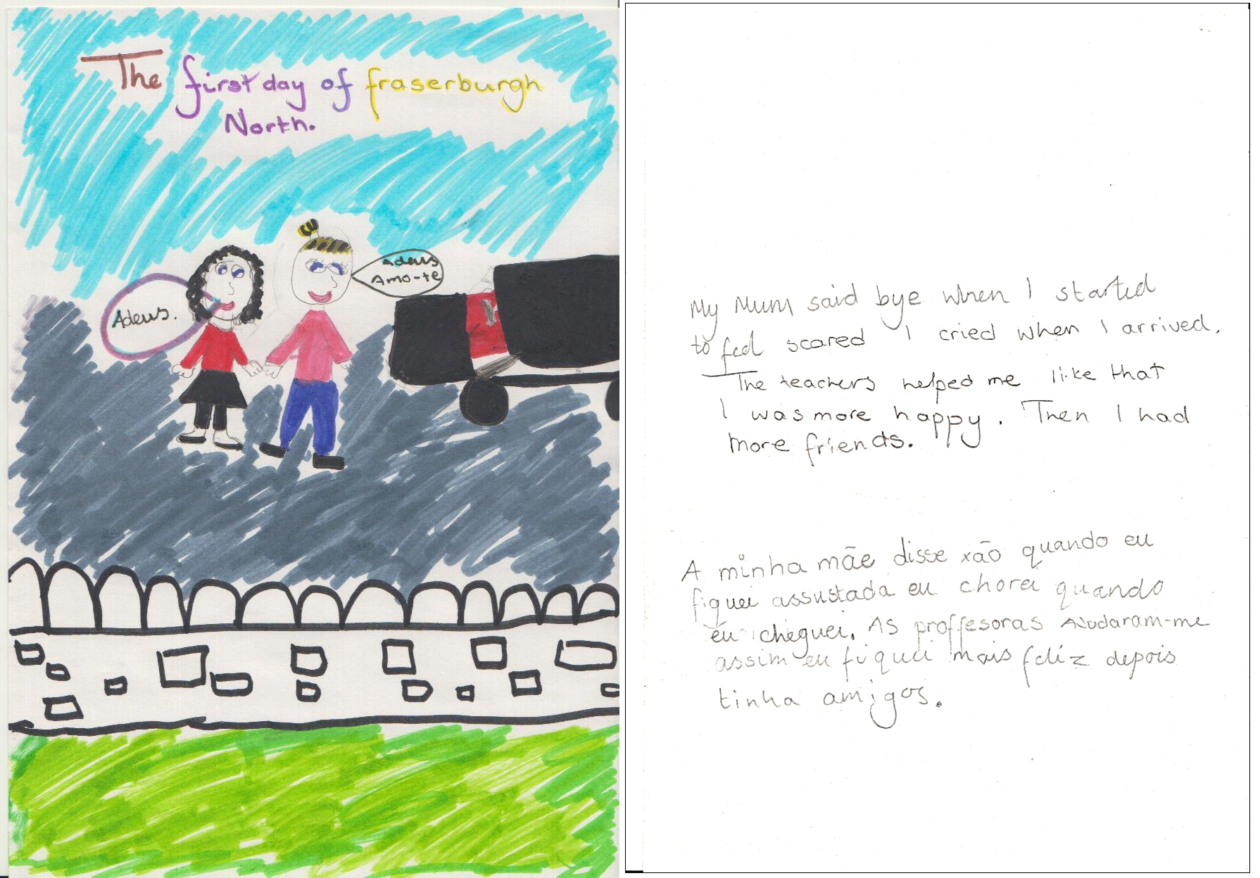 The first day of fraserburgh
North.
Adeus.
Adeus
Amo-te
My Mum said bye when I started
to feel scared I cried when I arrived.
The teachers helped me like that
I was more happy. Then I had
more friends.
A minha mãe disse xão quando eu
fiquei assustada eu chorei quando
eu cheguei. As proffesoras Ajudaram-me
assim eu fiquei mais feliz depois
tinha amigos.